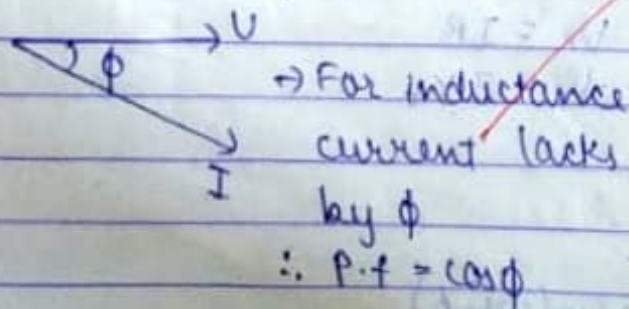 U
ϕ
→ For inductance
current lacks
I
by ϕ
∴ P.f = cosϕ